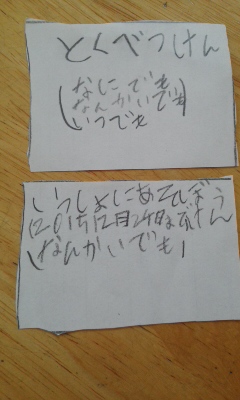 とくべつけん
(なにでも
なんかいでも
いつでも
いっしょにあそぼう
12月24日までけん
(なんかいでも)